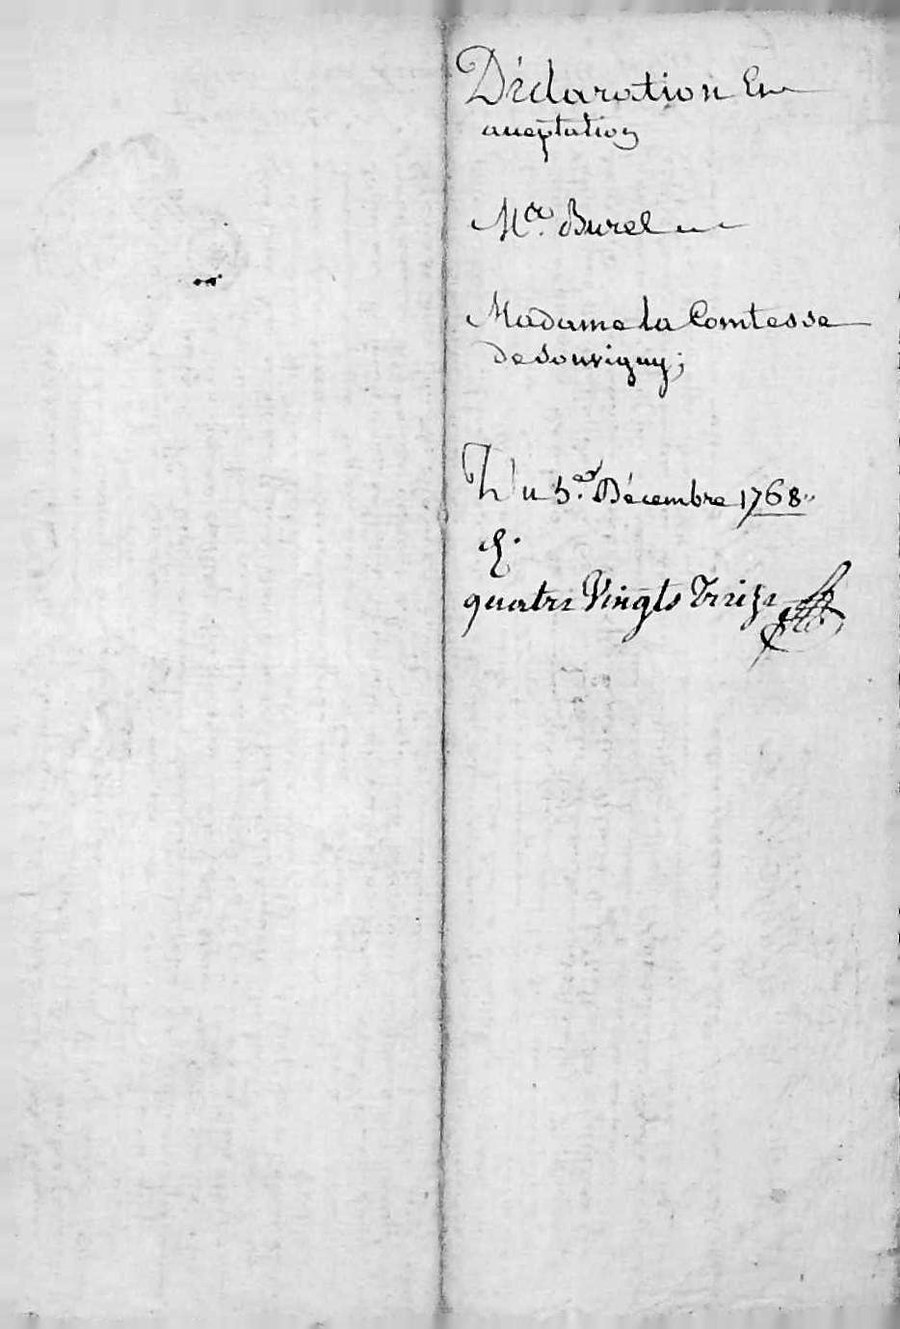 Déclaration En
acceptation
Mᵉ. Burel
Madame la Comtesse
de Souvigny;
Du 3.ᵉʳ Décembre 1768
quatre Vingts Treize